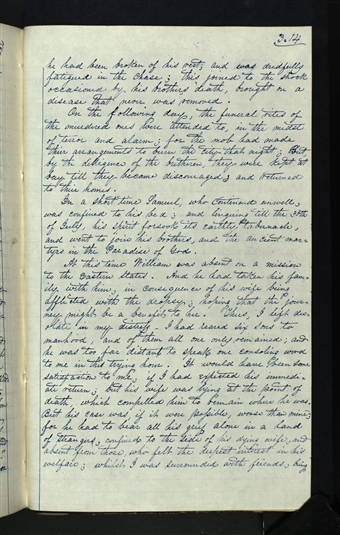 314
he had been broken of his rest; and was dredfully
fatigued in the chase; this joined to the shock
occasioned by, his brothers death, brought on a
disease that never was removed.
On the following day, the funeral rites of
the murdered ones were attended to, in the midst
of terror and alarm; for the mob had made
their arrangements to burn the City that night; But
by the diligence of the bretheren, they were kept at
bay till they became discouraged; and returned
to their homes.
In a short time Samuel, who continued unwell,
was confined to his bed; and lingering till the 30th
of July, his spirit forsook its earthly tabernacle
and went to join his brothers, and the ancient mar-
tyrs in the Paradise of God.
At this time William was absent on a mission
to the Eastern States. And he had taken his fam-
ily with him, in consequence of his wife being
afflicted with the dropsy; hoping that the jour-
ney might be a benefit to her. Thus, I left des-
olate in my distress. I had reared six sons to
manhood, and of them all one only remained; and
he was too far distant to speak one consoling word
to me in this trying hour. It would have been some
satisfaction to me, if I had expected his immedi-
ate return; but his wife was lying at the point of
death, which compelled him to remain where he was.
But his case was, if it were possible, worse than mine;
for he had to bear all his grief alone in a land
of strangers, confined to the side of his dying wife, and
absent from those who felt the deepest interest in his
welfare; whilst I was surrounded with friends, being